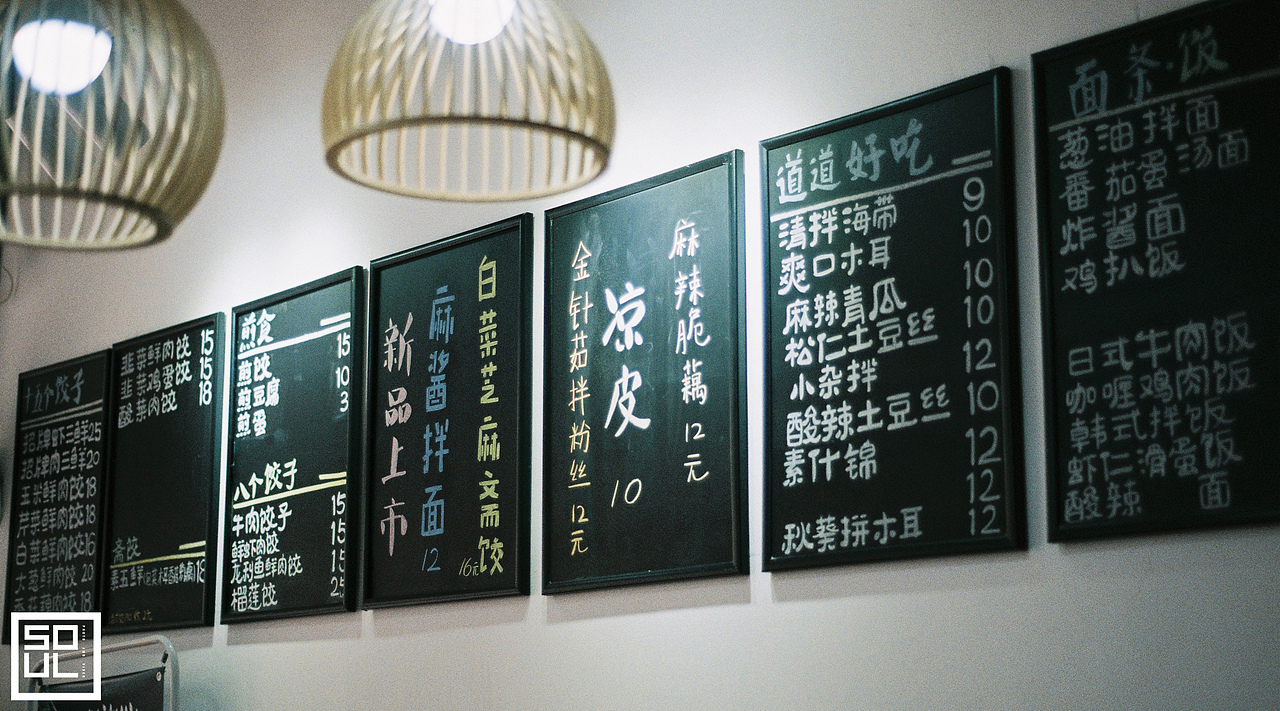 十五个饺子
招牌虾三鲜25
招牌肉三鲜20
玉米鲜肉饺18
芹菜鲜肉饺18
白菜鲜肉饺16
大葱鲜肉饺 20
韭菜鲜肉饺 15
韭菜鸡蛋饺 15
酸菜肉饺 18
斋饺
煎食
煎饺 15
煎豆腐 10
煎蛋 3
八个饺子
牛肉饺子 15
鲜虾肉饺 15
龙利鱼鲜肉饺 15
榴莲饺 25
白菜芝麻文而饺 16元
麻酱拌面 12
新品上市
麻辣脆藕 12元
凉皮 10
金针茹拌粉丝 12元
道道好吃
清拌海带 9
爽口木耳 10
麻辣青瓜 10
松仁土豆丝 10
小杂拌 12
酸辣土豆丝 10
素什锦 12
12
秋葵拼木耳 12
面条·饭
葱油拌面
番茄蛋汤面
炸酱面
鸡扒饭
日式牛肉饭
咖喱鸡肉饭
韩式拌饭
虾仁滑蛋饭
酸辣 面
SOUL